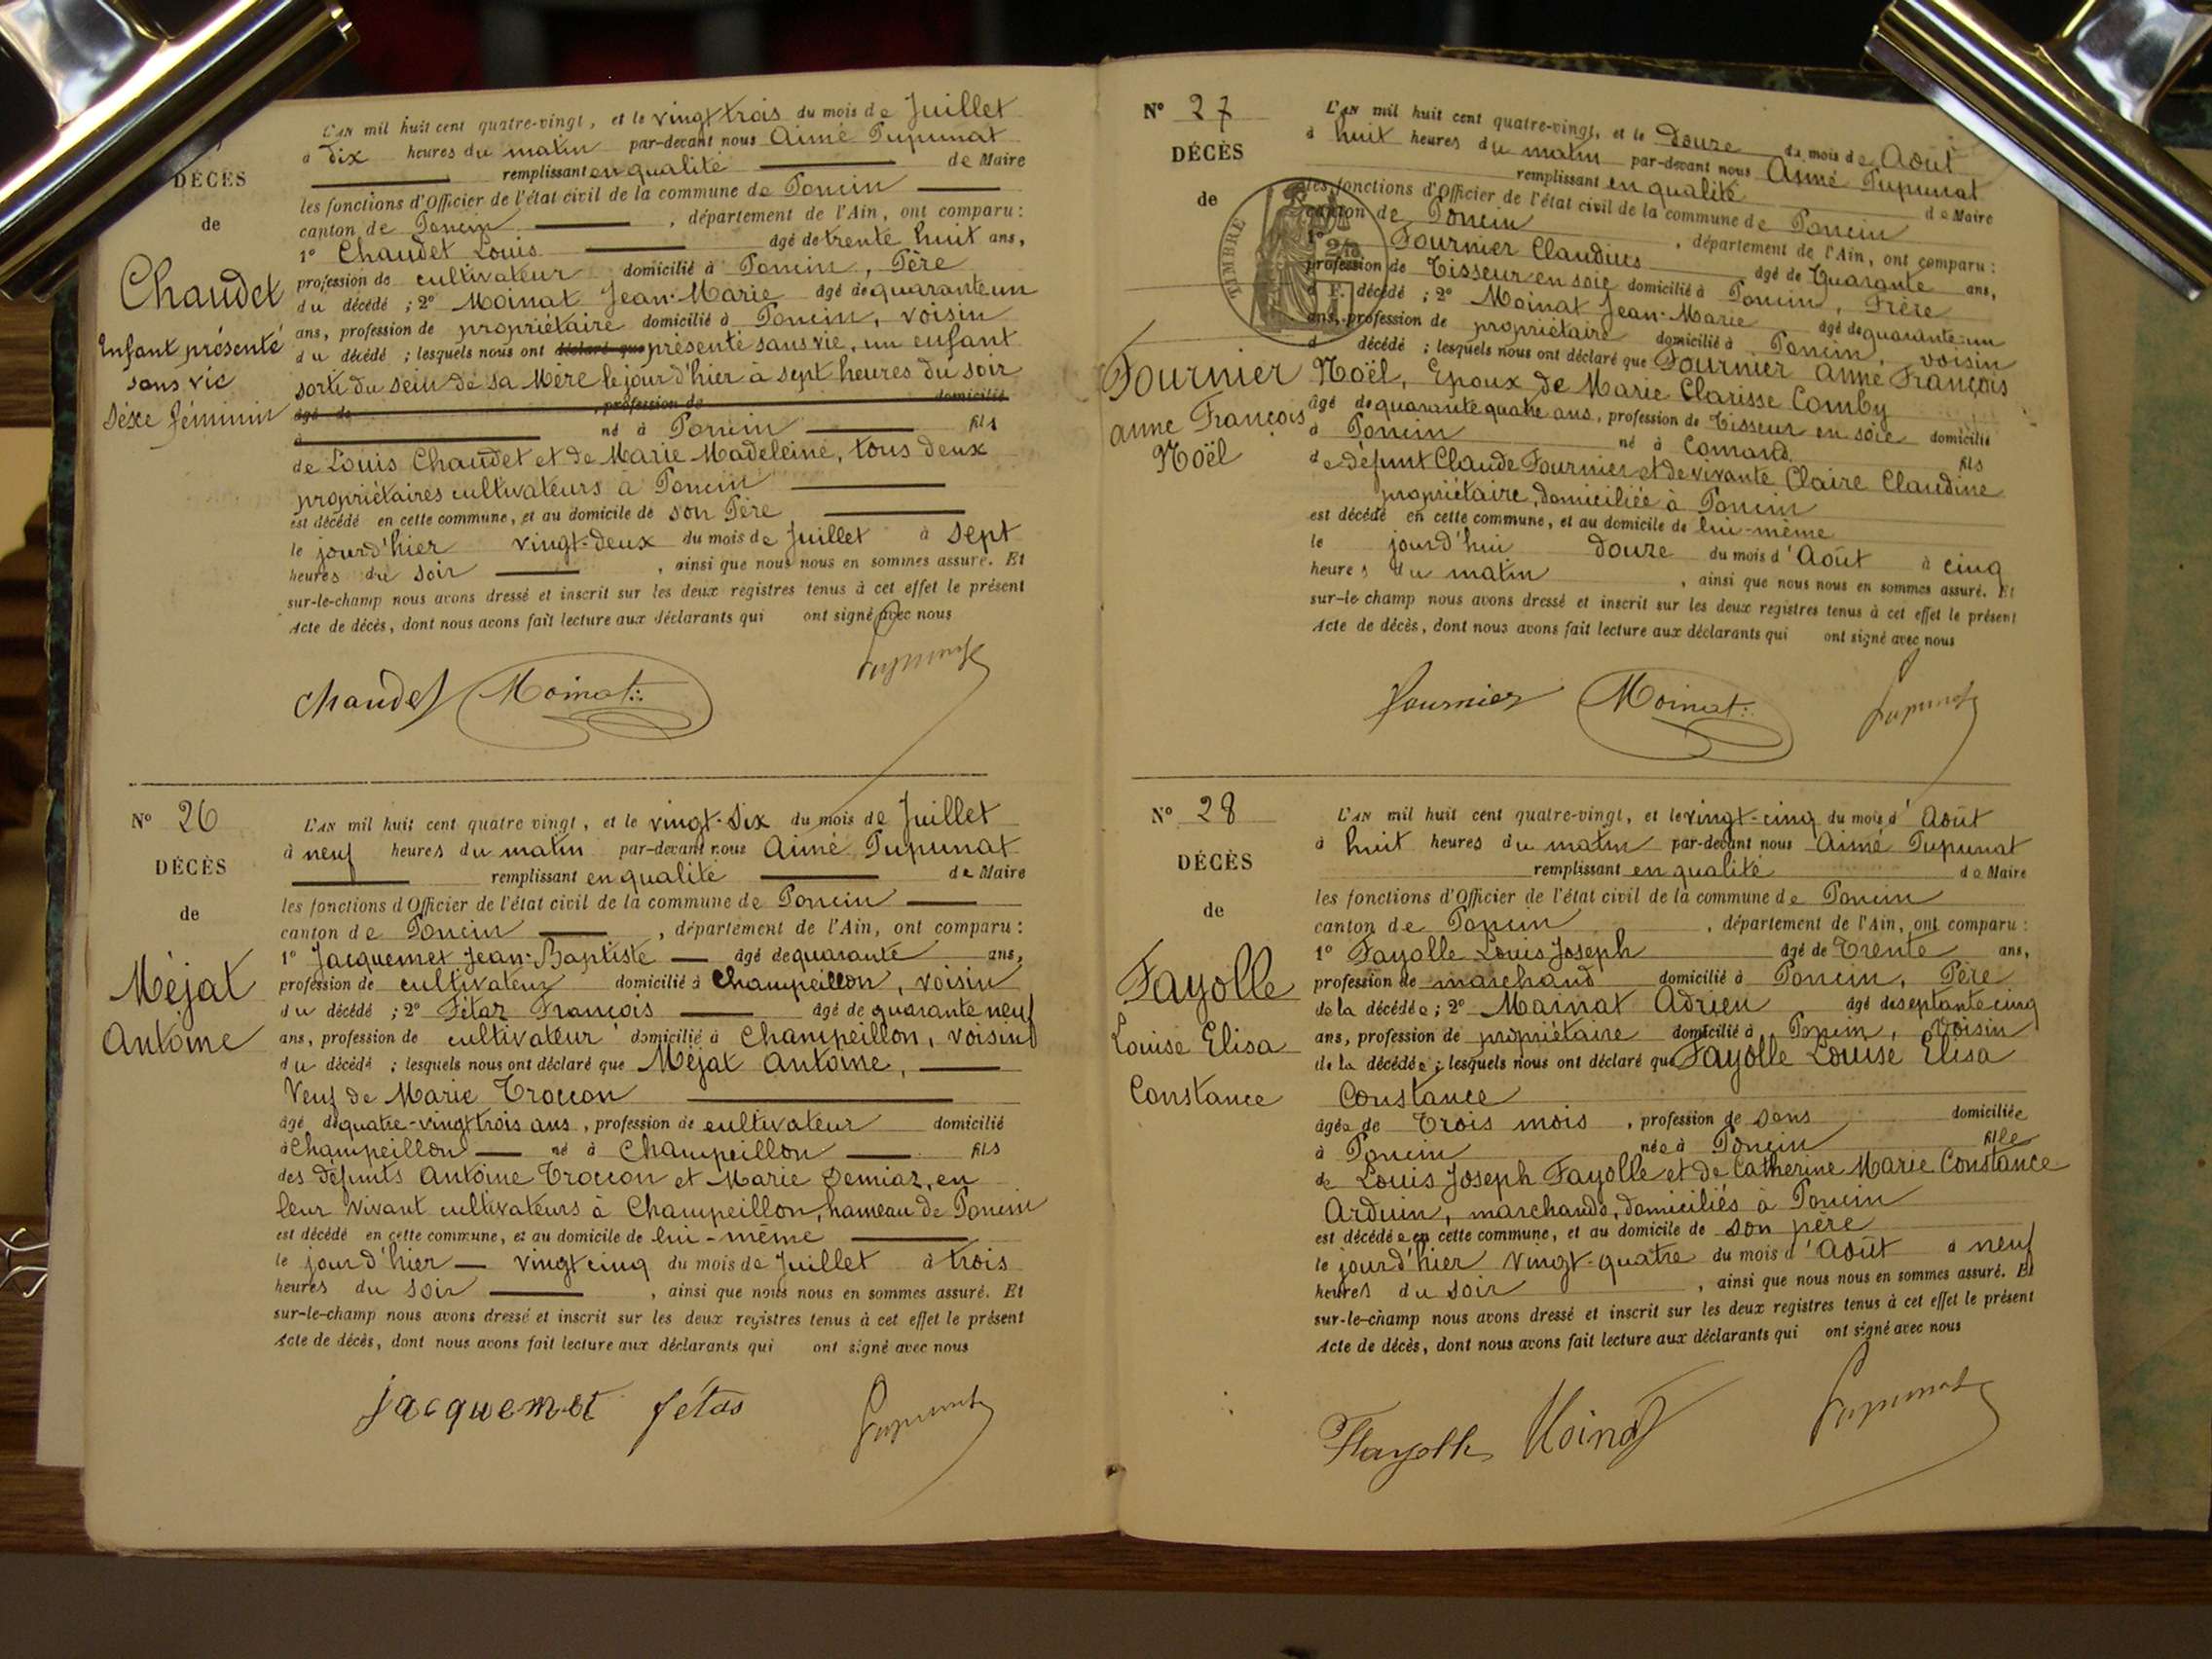 DÉCÈS
de
Chaudet
Enfant présenté
sans vie
Séxe féminin
L'AN mil huit cent quatre-vingt, et le vingt trois du mois de Juillet
à dix heures du matin par-devant nous Aimé Pupunat
remplissant en qualité de Maire
les fonctions d'Officier de l'état civil de la commune de Poncin
canton de Poncin, département de l'Ain, ont comparu :
1° Chaudet Louis âgé de trente huit ans,
profession de cultivateur domicilié à Poncin, Père
du décédé ; 2° Moinat Jean-Marie âgé de quarante un
ans, profession de propriétaire domicilié à Poncin, voisin
du décédé ; lesquels nous ont déclaré que présenté sans vie, un enfant
sorti du sein de sa Mère le jour d'hier à sept heures du soir
âgé de , profession de domicilié
à né à Poncin fils
de Louis Chaudet et de Marie Madeleine, tous deux
propriétaires cultivateurs à Poncin
est décédé en cette commune, et au domicile de son Père
le jour d'hier vingt-deux du mois de Juillet à sept
heures du soir , ainsi que nous nous en sommes assuré. Et
sur-le-champ nous avons dressé et inscrit sur les deux registres tenus à cet effet le présent
Acte de décès, dont nous avons fait lecture aux déclarants qui ont signé avec nous
Chaudet Moinat Pupunat
N° 26
DÉCÈS
de
Méjat
Antoine
L'AN mil huit cent quatre vingt, et le vingt-Six du mois de Juillet
à neuf heures du matin par-devant nous Aimé Pupunat
remplissant en qualité de Maire
les fonctions d'Officier de l'état civil de la commune de Poncin
canton de Poncin , département de l'Ain, ont comparu :
1° Jacquemet Jean-Baptiste âgé de quarante ans,
profession de cultivateur domicilié à Champeillon, voisin
du décédé ; 2° Fétaz François âgé de quarante neuf
ans, profession de cultivateur domicilié à Champeillon, voisin
du décédé ; lesquels nous ont déclaré que Méjat Antoine,
Veuf de Marie Troccon
âgé de quatre-vingt trois ans, profession de cultivateur domicilié
à Champeillon né à Champeillon fils
des défunts Antoine Troccon et Marie Demiaz, en
leur vivant cultivateurs à Champeillon, hameau de Poncin
est décédé en cette commune, et au domicile de lui-même
le jour d'hier vingt cinq du mois de Juillet à trois
heures du soir , ainsi que nous nous en sommes assuré. Et
sur-le-champ nous avons dressé et inscrit sur les deux registres tenus à cet effet le présent
Acte de décès, dont nous avons fait lecture aux déclarants qui ont signé avec nous
jacquemet fétas Pupunat
N° 27
DÉCÈS
de
TIMBRE
Fournier
Anne François
Noël
L'AN mil huit cent quatre-vingt, et le douze du mois de Août
à huit heures du matin par-devant nous Aimé Pupunat
remplissant en qualité de Maire
les fonctions d'Officier de l'état civil de la commune de Poncin
canton de Poncin , département de l'Ain, ont comparu :
1° Fournier Claudius âgé de Quarante ans,
profession de Tisseur en soie domicilié à Poncin, Frère
d décédé ; 2° Moinat Jean-Marie âgé de quarante-un
ans, profession de propriétaire domicilié à Poncin, voisin
d décédé ; lesquels nous ont déclaré que Fournier Anne François
Noël, Epoux de Marie Clarisse Comby
âgé de quarante quatre ans, profession de Tisseur en soie domicilié
à Poncin né à Comand fils
de défunt Claude Fournier et de vivante Claire Claudine
propriétaire, domiciliée à Poncin
est décédé en cette commune, et au domicile de lui-même
le jour d'hui douze du mois d'Août à cinq
heures du matin , ainsi que nous nous en sommes assuré. Et
sur-le champ nous avons dressé et inscrit sur les deux registres tenus à cet effet le présent
Acte de décès, dont nous avons fait lecture aux déclarants qui ont signé avec nous
Fournier Moinat Pupunat
N° 28
DÉCÈS
de
Fayolle
Louise Elisa
Constance
L'AN mil huit cent quatre-vingt, et le vingt-cinq du mois d'Août
à huit heures du matin par-devant nous Aimé Pupunat
remplissant en qualité de Maire
les fonctions d'Officier de l'état civil de la commune de Poncin
canton de Poncin , département de l'Ain, ont comparu :
1° Fayolle Louis Joseph âgé de Trente ans,
profession de marchand domicilié à Poncin, Père
de la décédée ; 2° Mainat Adrien âgé de septante cinq
ans, profession de propriétaire domicilié à Poncin, Voisin
de la décédée ; lesquels nous ont déclaré que Fayolle Louise Elisa
Constance
âgée de Trois mois , profession de sans domiciliée
à Poncin née à Poncin fille
de Louis Joseph Fayolle et de Catherine Marie Constance
Arduin, marchands, domiciliés à Poncin
est décédée en cette commune, et au domicile de son père
le jour d'hier vingt-quatre du mois d'Août à neuf
heures du soir , ainsi que nous nous en sommes assuré. Et
sur-le-champ nous avons dressé et inscrit sur les deux registres tenus à cet effet le présent
Acte de décès, dont nous avons fait lecture aux déclarants qui ont signé avec nous
Fayolle Moinat Pupunat